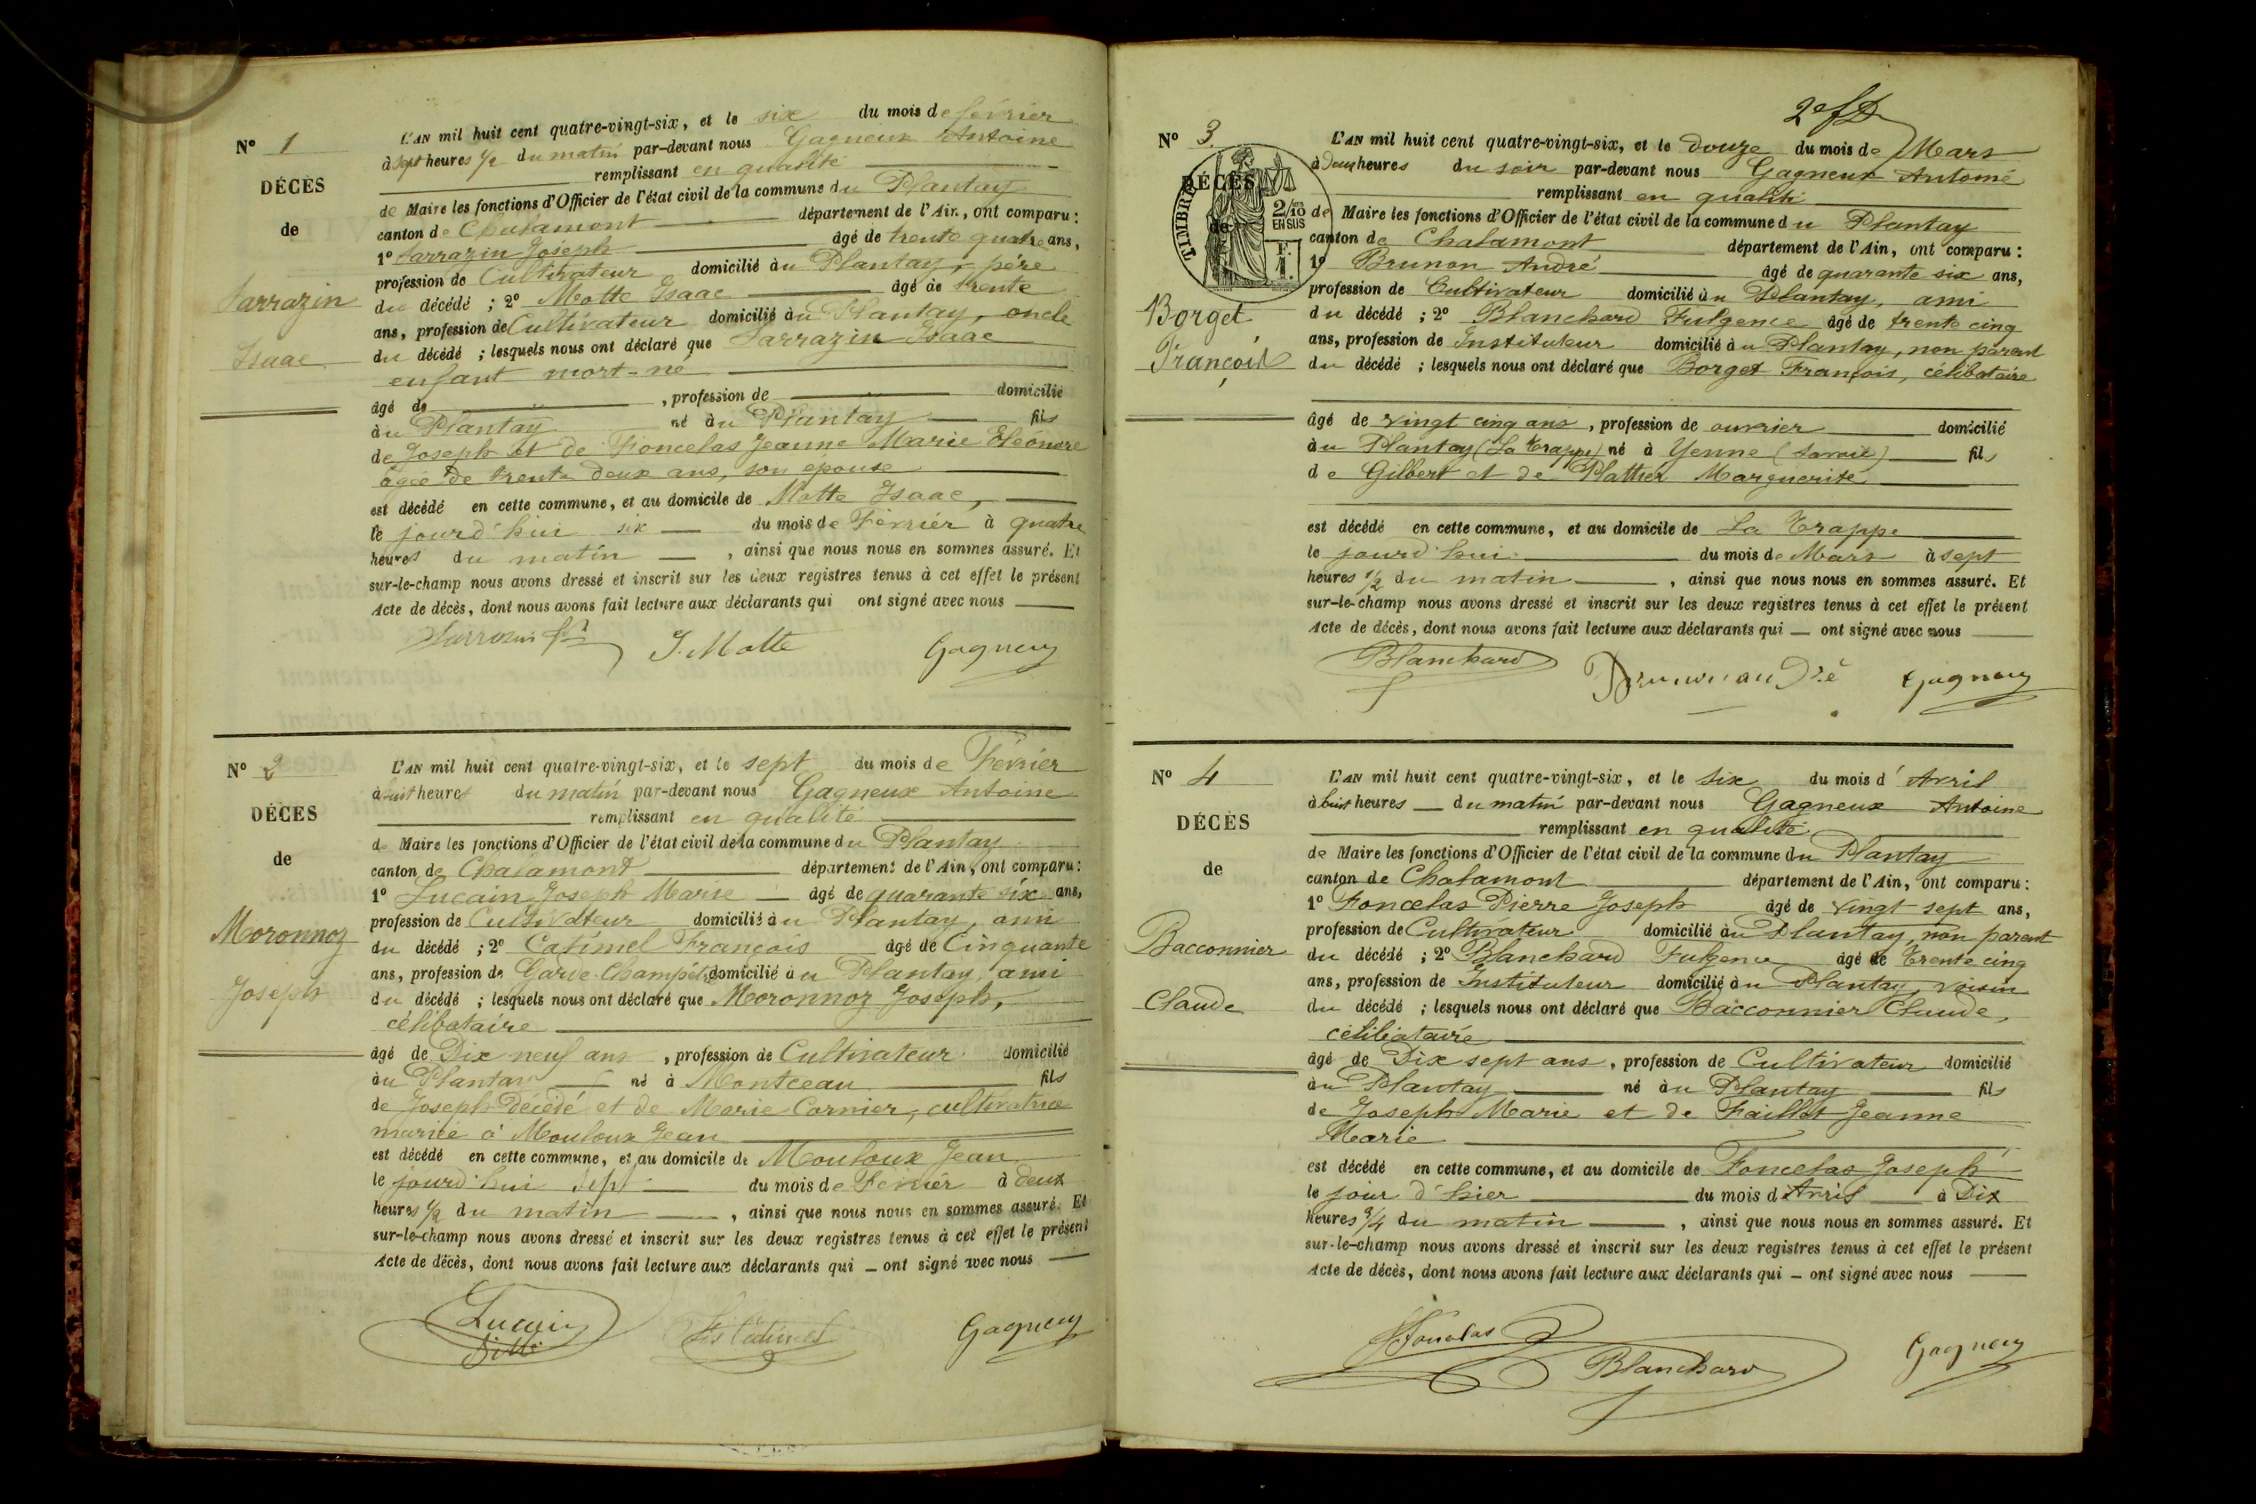 Nº 1
DÉCÈS
de
Sarrazin
Isaac
L'AN mil huit cent quatre-vingt-six, et le six du mois de février
à sept heures ½ du matin par-devant nous Gagneux Antoine
remplissant en qualité
de Maire les fonctions d'Officier de l'état civil de la commune du Plantay
canton de Chalamont département de l'Ain, ont comparu :
1º Sarrazin Joseph âgé de trente quatre ans,
profession de Cultivateur domicilié au Plantay, père
du décédé ; 2º Motte Isaac âgé de trente
ans, profession de Cultivateur domicilié au Plantay, oncle
du décédé ; lesquels nous ont déclaré que Sarrazin Isaac
enfant mort-né
âgé de , profession de domicilié
au Plantay né au Plantay fils
de Joseph et de Foncelas Jeanne Marie Eléonore
âgée de trente deux ans, son épouse
est décédé en cette commune, et au domicile de Motte Isaac,
le jourd'hui six du mois de Février à quatre
heures du matin , ainsi que nous nous en sommes assuré. Et
sur-le-champ nous avons dressé et inscrit sur les deux registres tenus à cet effet le présent
Acte de décès, dont nous avons fait lecture aux déclarants qui ont signé avec nous
Sarrazin J. Motte Gagneux
Nº 2
DÉCÈS
de
Moronnoz
Joseph
L'AN mil huit cent quatre-vingt-six, et le sept du mois de Février
à huit heures du matin par-devant nous Gagneux Antoine
remplissant en qualité
de Maire les fonctions d'Officier de l'état civil de la commune du Plantay
canton de Chalamont département de l'Ain, ont comparu :
1º Lucain Joseph Marie âgé de quarante six ans,
profession de Cultivateur domicilié au Plantay, ami
du décédé ; 2º Catimel François âgé de Cinquante
ans, profession de Garde-Champêtre domicilié au Plantay, ami
du décédé ; lesquels nous ont déclaré que Moronnoz Joseph,
célibataire
âgé de Dix neuf ans , profession de Cultivateur domicilié
au Plantay né à Montceau fils
de Joseph Décédé et de Marie Cornier, cultivatrice
mariée à Mouloux Jean
est décédé en cette commune, et au domicile de Mouloux Jean
le jourd'hui sept du mois de Février à deux
heures ½ du matin , ainsi que nous nous en sommes assuré. Et
sur-le-champ nous avons dressé et inscrit sur les deux registres tenus à cet effet le présent
Acte de décès, dont nous avons fait lecture aux déclarants qui – ont signé avec nous
Lucain Catimel Gagneux
2e f
Nº 3
DÉCÈS
de
TIMBRE
2/10
EN SUS
Borget
François
L'AN mil huit cent quatre-vingt-six, et le douze du mois de Mars
à deux heures du soir par-devant nous Gagneux Antoine
remplissant en qualité
de Maire les fonctions d'Officier de l'état civil de la commune du Plantay
canton de Chalamont département de l'Ain, ont comparu :
1º Brunon André âgé de quarante six ans,
profession de Cultivateur domicilié au Plantay, ami
du décédé ; 2º Blanchard Fulgence âgé de trente cinq
ans, profession de Instituteur domicilié au Plantay, non parent
du décédé ; lesquels nous ont déclaré que Borget François, célibataire
âgé de vingt cinq ans , profession de ouvrier domicilié
au Plantay (La Trappe) né à Yenne (Savoie) fils
de Gilbert et de Plattier Marguerite
est décédé en cette commune, et au domicile de La Trappe
le jourd'hui du mois de Mars à sept
heures ½ du matin , ainsi que nous nous en sommes assuré. Et
sur-le-champ nous avons dressé et inscrit sur les deux registres tenus à cet effet le présent
Acte de décès, dont nous avons fait lecture aux déclarants qui – ont signé avec nous
Blanchard Brunon andré Gagneux
Nº 4
DÉCÈS
de
Bacconnier
Claude
L'AN mil huit cent quatre-vingt-six, et le six du mois d'Avril
à huit heures du matin par-devant nous Gagneux Antoine
remplissant en qualité
de Maire les fonctions d'Officier de l'état civil de la commune du Plantay
canton de Chalamont département de l'Ain, ont comparu :
1º Foncelas Pierre Joseph âgé de vingt sept ans,
profession de Cultivateur domicilié au Plantay, non parent
du décédé ; 2º Blanchard Fulgence âgé de trente cinq
ans, profession de Instituteur domicilié au Plantay, voisin
du décédé ; lesquels nous ont déclaré que Bacconnier Claude,
célibataire
âgé de Dix sept ans , profession de Cultivateur domicilié
au Plantay né au Plantay fils
de Joseph Marie et de Faillet Jeanne
Marie
est décédé en cette commune, et au domicile de Foncelas Joseph
le jour d'hier du mois d'Avril à Dix
heures ¾ du matin , ainsi que nous nous en sommes assuré. Et
sur-le-champ nous avons dressé et inscrit sur les deux registres tenus à cet effet le présent
Acte de décès, dont nous avons fait lecture aux déclarants qui – ont signé avec nous
Foncelas Blanchard Gagneux